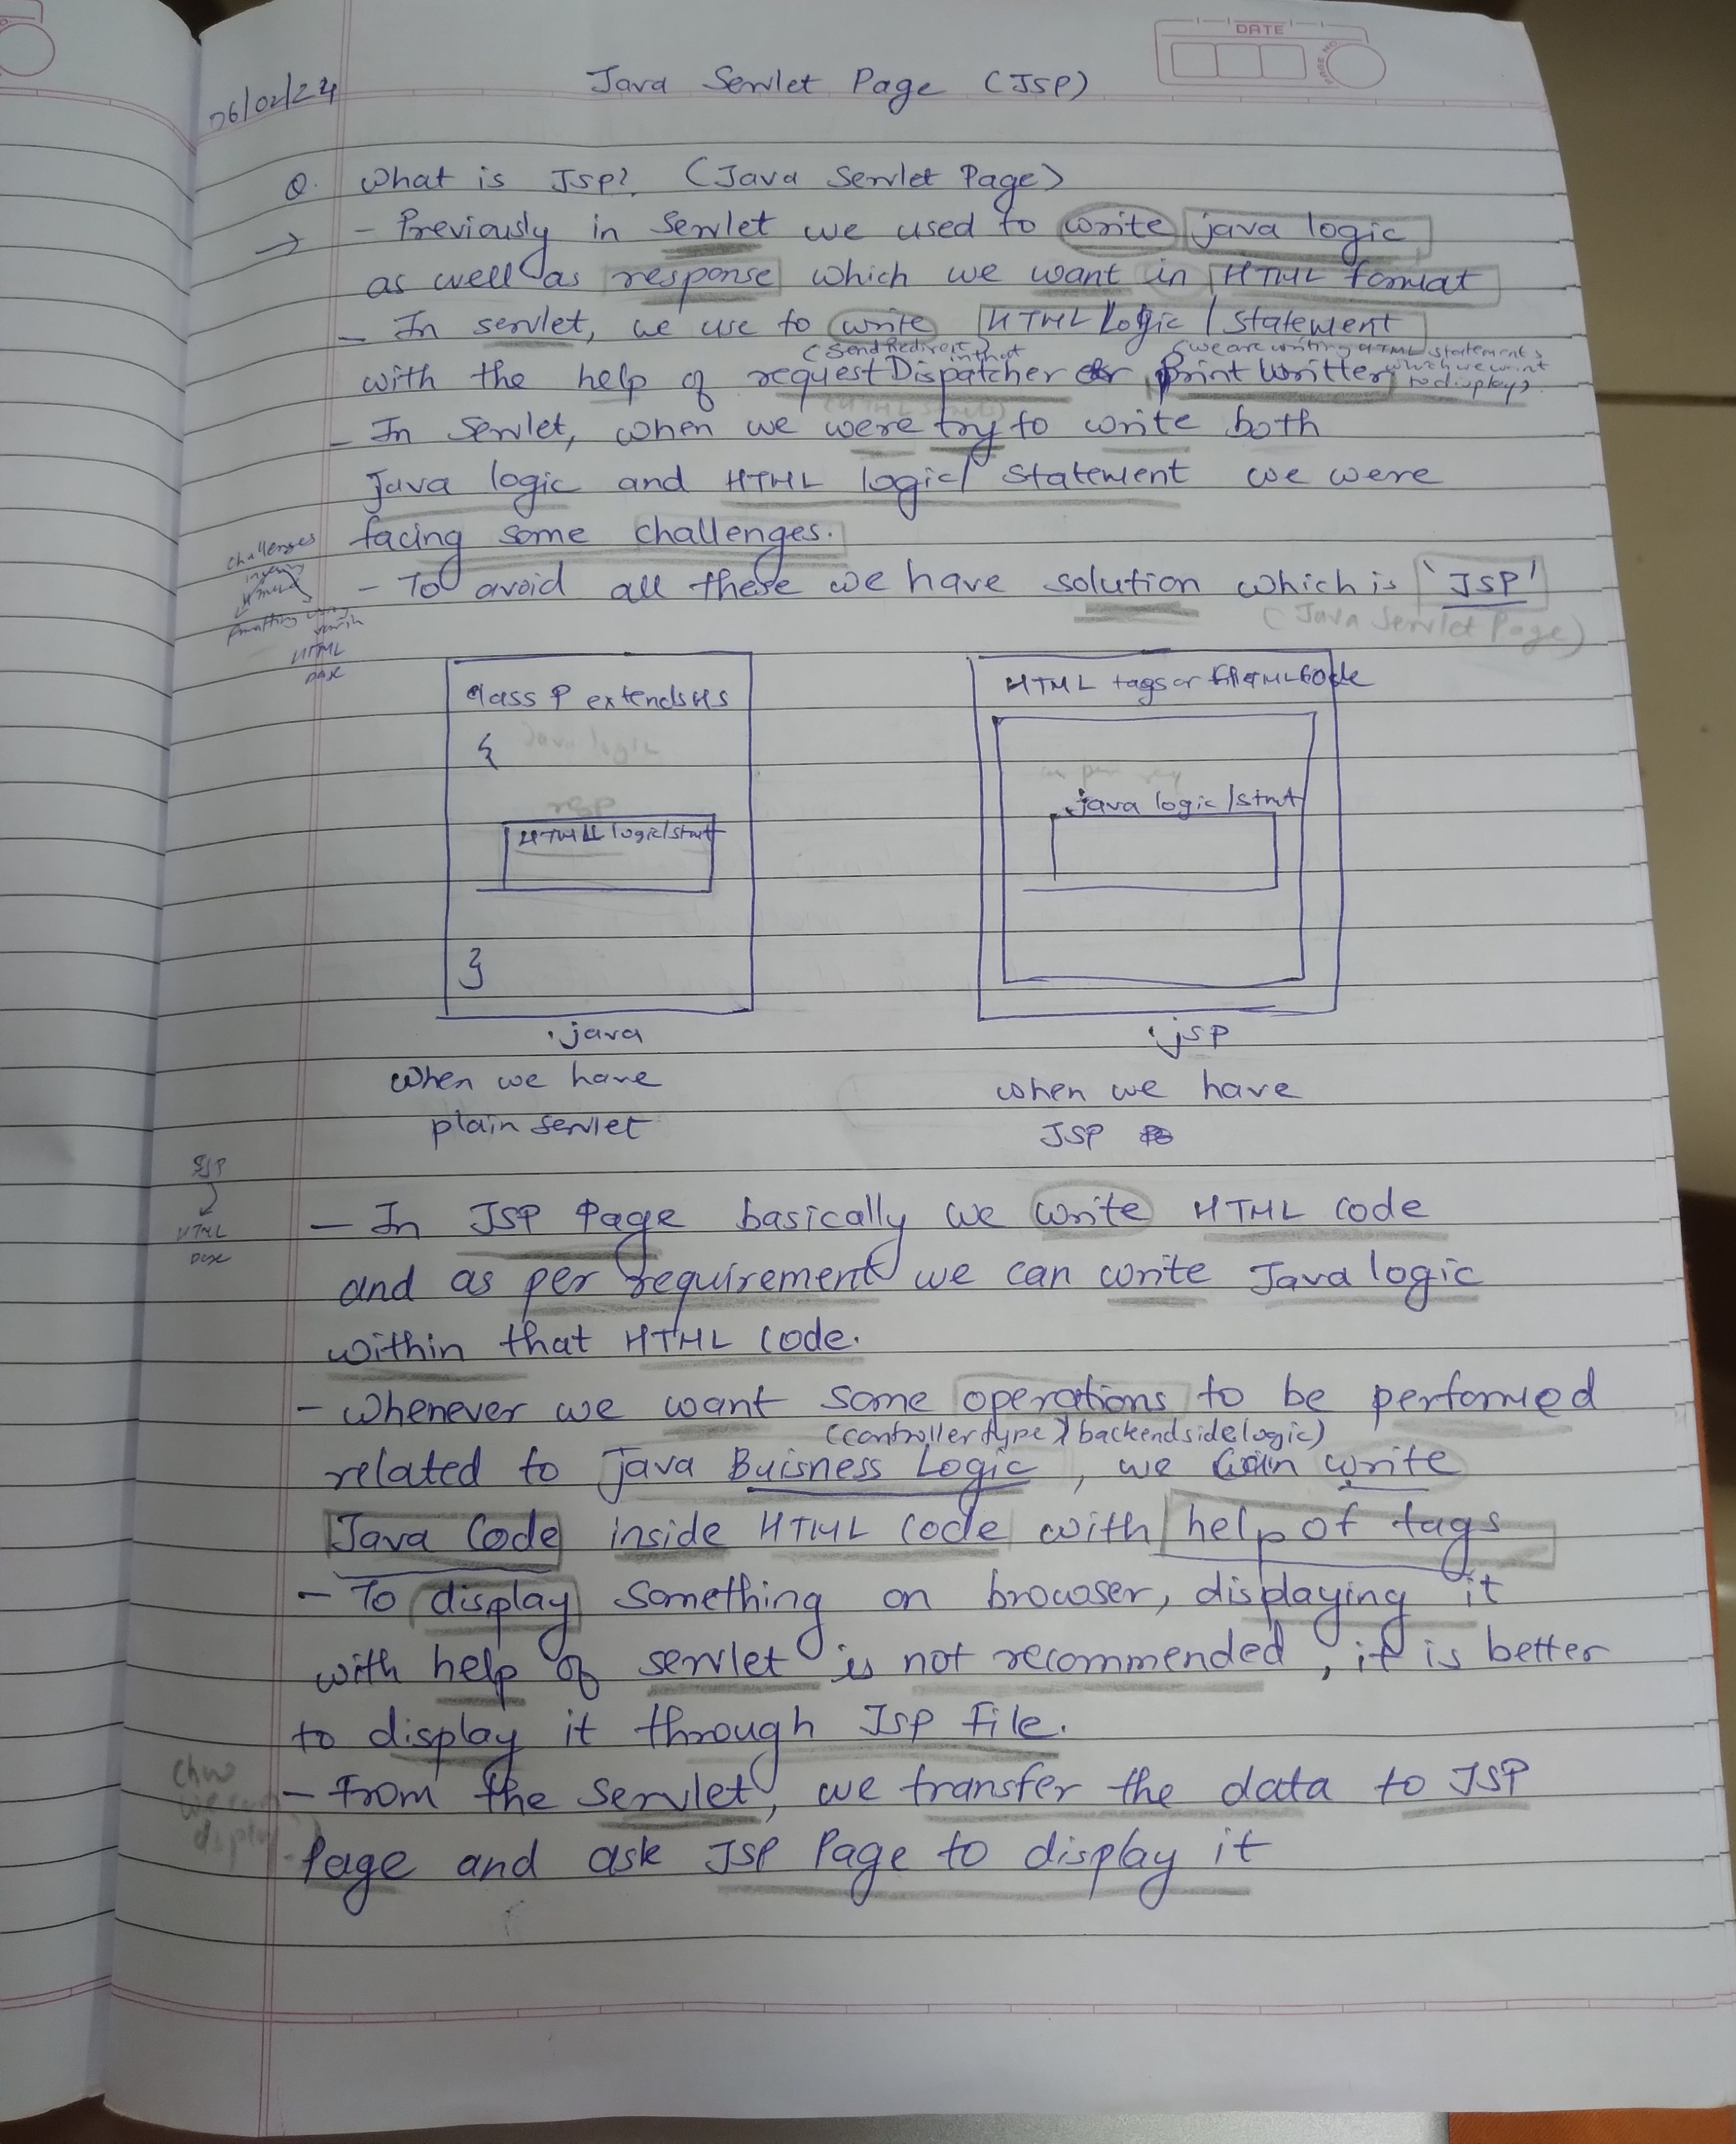 DATE
PAGE NO.
06/02/24
Java Servlet Page (JSP)
Q. What is JSP? (Java Servlet Page)
→ - Previously in Servlet we used to write java logic
as well as response which we want in HTML format
- In servlet, we use to write HTML logic / statement
(SendRedirect) in that (we are writing HTML statements
with the help of requestDispatcher or Print Writter which we want to display)
- In Servlet, when we were try to write both
Java logic and HTML logic/ statement we were
facing some challenges.
challenges
- To avoid all these we have solution which is 'JSP'
(Java Servlet Page)
HTML
class P extends HS
{ Java logic
resp
HTML logic/stmt
}
.java
when we have
plain servlet
HTML tags or HTML code
as per req
java logic/stmt
.jsp
when we have
JSP
JSP
HTML
- In JSP Page basically we write HTML code
and as per requirement we can write Java logic
within that HTML code.
- Whenever we want some operations to be performed
(controller type / backend side logic)
related to java Buisness Logic, we can write
Java Code inside HTML code with help of tags
- To display something on browser, displaying it
with help of servlet is not recommended, it is better
to display it through Jsp file.
- From the Servlet, we transfer the data to JSP
Page and ask JSP Page to display it